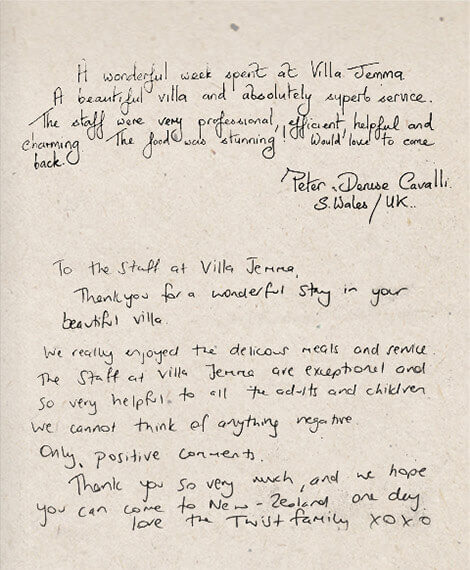 A wonderful week spent at Villa Jemma
A beautiful villa and absolutely superb service.
The staff were very professional, efficient, helpful and
charming The food was stunning! Would love to come
back.
Peter & Denise Cavalli.
S. Wales / UK..
To the Staff at Villa Jemma,
Thankyou for a wonderful stay in your
beautiful villa.
We really enjoyed the delicous meals and service.
The Staff at Villa Jemma are exceptional and
so very helpful to all the adults and children
We cannot think of anything negative.
Only, positive comments.
Thank you so very much, and we hope
you can come to New-Zealand one day.
love the Twist family xoxo